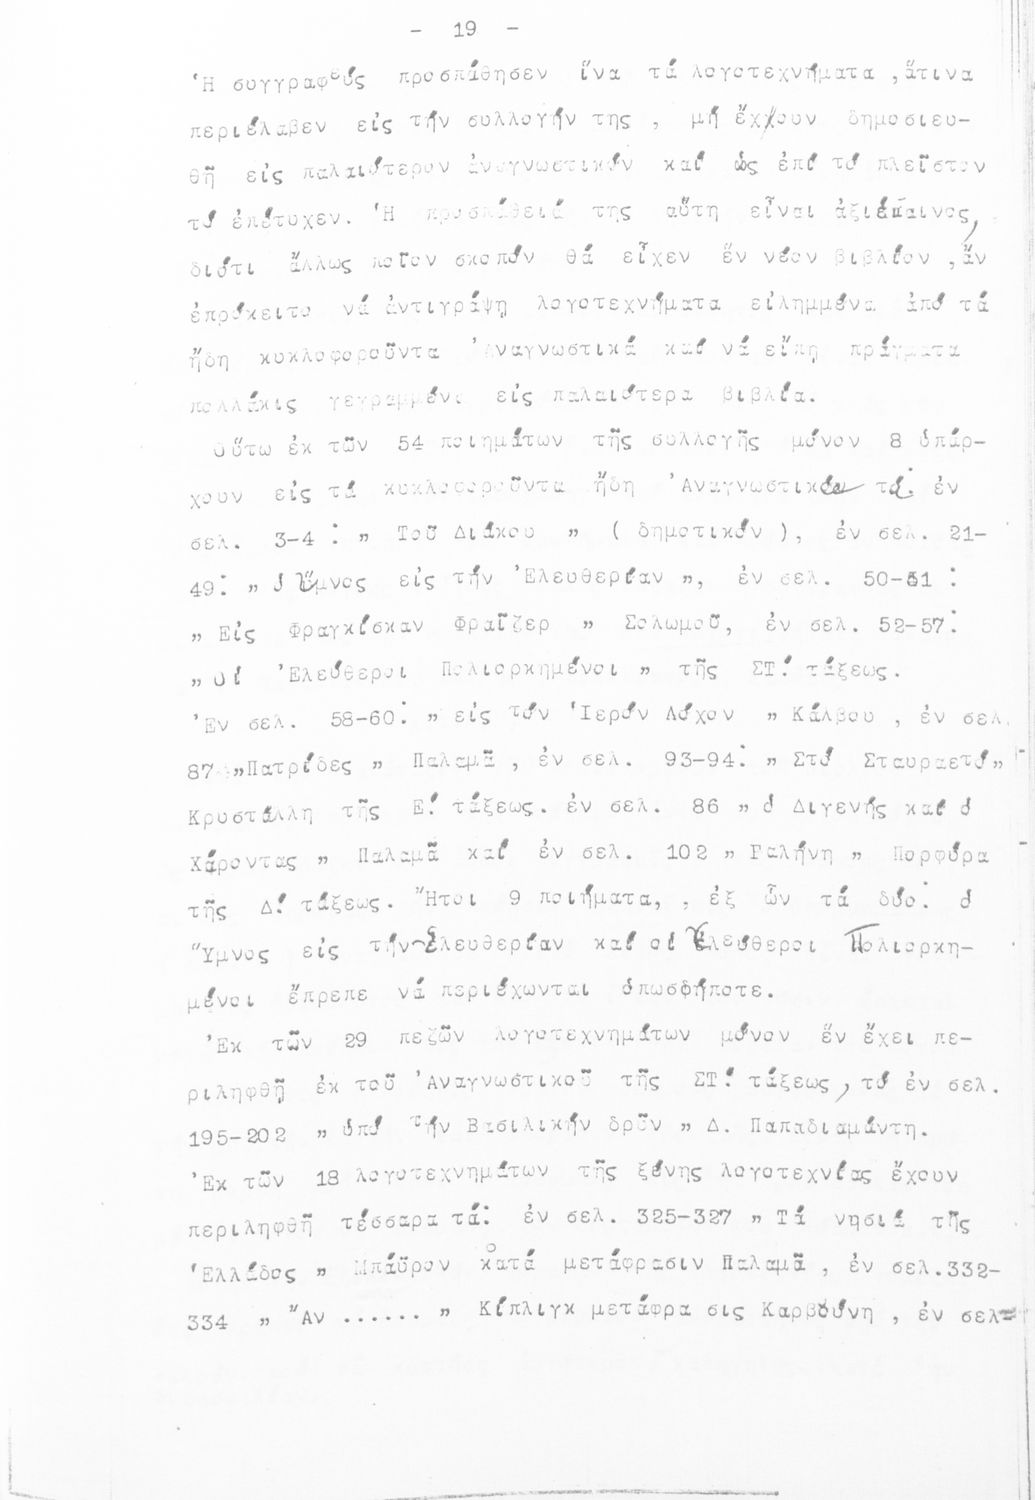 - 19 -
Ἡ συγγραφεύς προσπάθησεν ἵνα τά λογοτεχνήματα ,ἅτινα
περιέλαβεν εἰς τήν συλλογήν της , μή ἔχχουν δημοσιευ-
θῆ εἰς παλαιότερον ἀναγνωστικόν καί ὡς ἐπί τό πλεῖστον
τό ἐπέτυχεν. Ἡ προσπάθειά της αὕτη εἶναι ἀξιέπαινος,
διότι ἄλλως ποῖον σκοπόν θά εἶχεν ἕν νέον βιβλίον ,ἄν
ἐπρόκειτο νά ἀντιγράψῃ λογοτεχνήματα εἰλημμένα ἀπό τά
ἤδη κυκλοφοροῦντα Ἀναγνωστικά καί νά εἴπῃ πράγματα
πολλάκις γεγραμμένα εἰς παλαιότερα βιβλία.
Οὕτω ἐκ τῶν 54 ποιημάτων τῆς συλλογῆς μόνον 8 ὑπάρ-
χουν εἰς τά κυκλοφοροῦντα ἤδη Ἀναγνωστικά τά: ἐν
σελ. 3-4 : " Τοῦ Διάκου " ( δημοτικόν ), ἐν σελ. 21-
49: " ὁ Ὕμνος εἰς τήν Ἐλευθερίαν ", ἐν σελ. 50-51 :
" Εἰς Φραγκίσκαν Φραῖζερ " Σολωμοῦ, ἐν σελ. 52-57:
" Οἱ Ἐλεύθεροι Πολιορκημένοι " τῆς ΣΤ! τάξεως.
Ἐν σελ. 58-60: " εἰς τόν Ἱερόν Λόχον " Κάλβου , ἐν σελ.
87 :"Πατρίδες " Παλαμᾶ , ἐν σελ. 93-94: " Στό Σταυραετό"
Κρυστάλλη τῆς Ε! τάξεως. ἐν σελ. 86 " ὁ Διγενής καί ὁ
Χάροντας " Παλαμᾶ καί ἐν σελ. 102 " Γαλήνη " Πορφύρα
τῆς Δ! τάξεως. Ἤτοι 9 ποιήματα, , ἐξ ὧν τά δύο: ὁ
Ὕμνος εἰς τήν Ἐλευθερίαν καί οἱ Ἐλεύθεροι Πολιορκη-
μένοι ἔπρεπε νά περιέχωνται ὁπωσφήποτε.
Ἐκ τῶν 29 πεζῶν λογοτεχνημάτων μόνον ἕν ἔχει πε-
ριληφθῆ ἐκ τοῦ Ἀναγνωστικοῦ τῆς ΣΤ! τάξεως, τό ἐν σελ.
195-202 " ὑπό τήν Βασιλικήν δρῦν " Δ. Παπαδιαμάντη.
Ἐκ τῶν 18 λογοτεχνημάτων τῆς ξένης λογοτεχνίας ἔχουν
περιληφθῆ τέσσαρα τά: ἐν σελ. 325-327 " Τά νησιά τῆς
Ἑλλάδος " Μπάϋρον κατά μετάφρασιν Παλαμᾶ , ἐν σελ.332-
334 " "Αν ...... " Κίπλιγκ μετάφρα σις Καρβούνη , ἐν σελ=